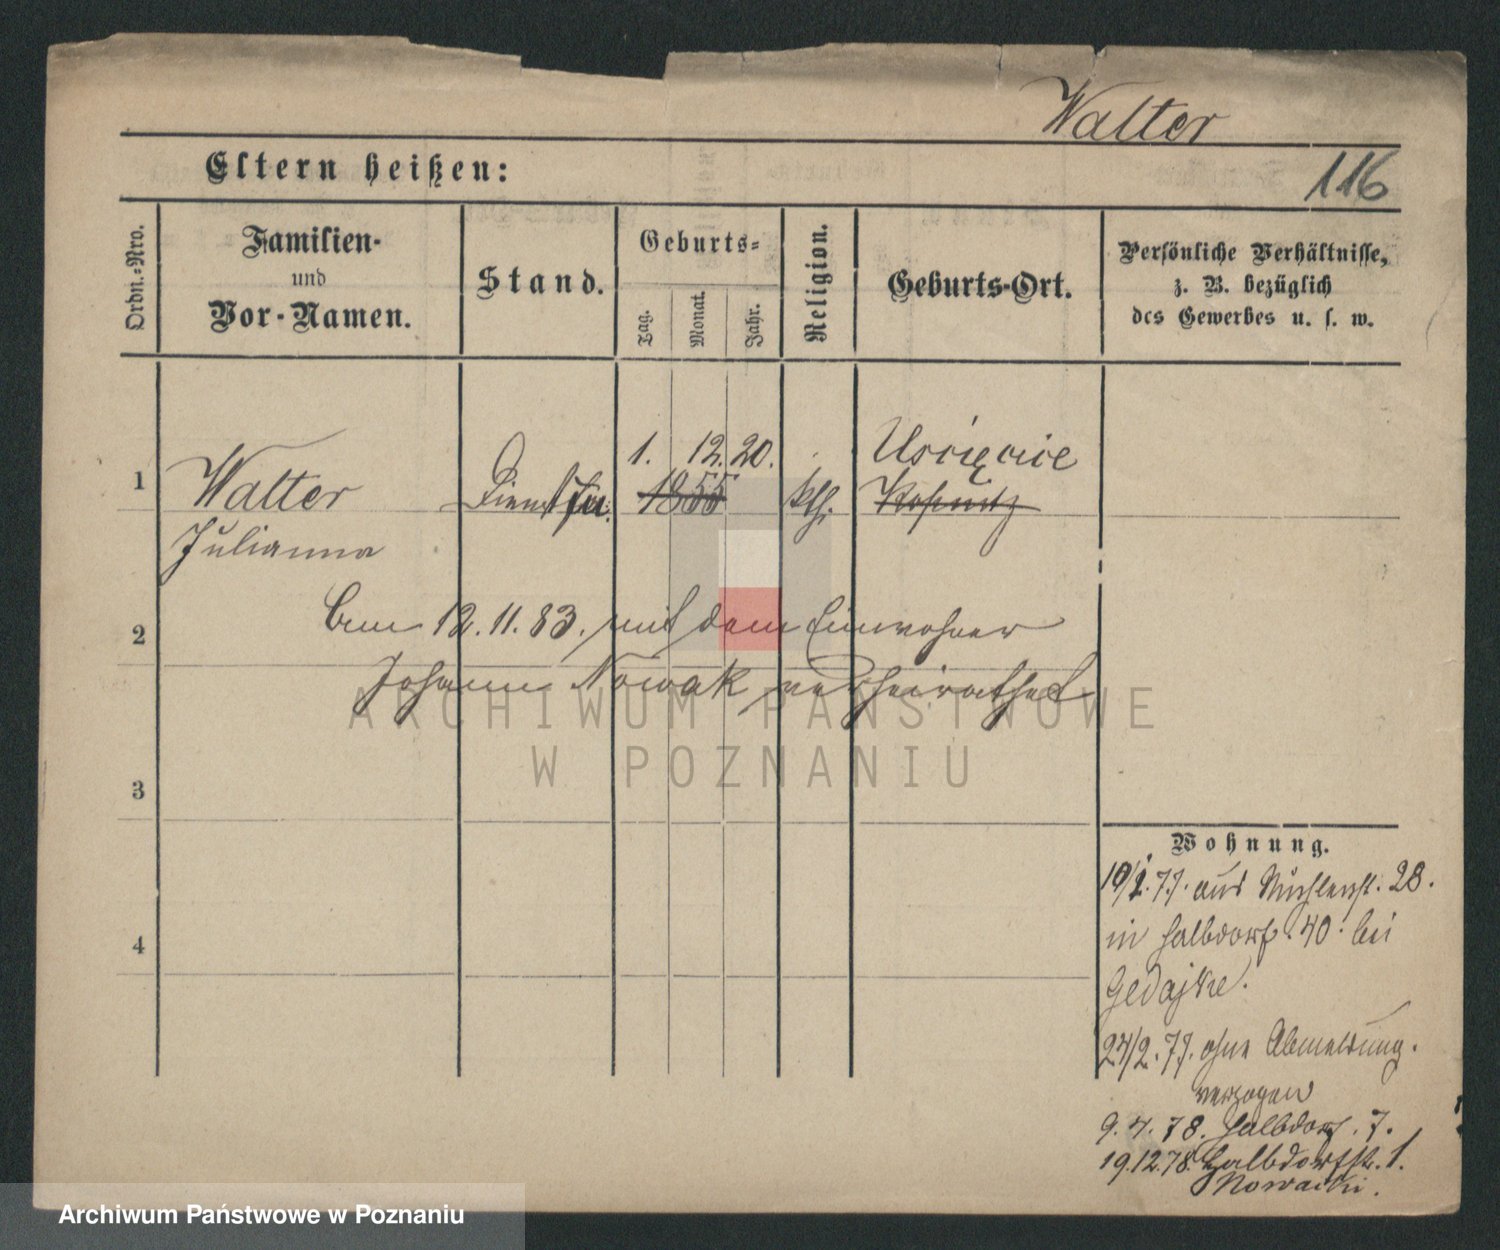 Walter
116
Eltern heißen:
Ordn.-Nro.
Familien-
und
Vor-Namen.
Stand.
Geburts-
Tag.
Monat.
Jahr.
Religion.
Geburts-Ort.
Persönliche Verhältnisse,
z. B. bezüglich
des Gewerbes u. s. w.
1. 12. 20.
1
Walter
1855
kth.
Julianna
2
12. 11. 83. mit dem Einwohner
Johann Nowak verheirathet
3
Wohnung.
aus 28.
in Halbdorf. 40. bei
4
24/2. 77. ohne Abmeldung.
verzogen
9. 4. 78. Halbdorf. 7.
19.12.78. Halbdorfstr. 1.
Nowacki.
ARCHIWUM PAŃSTWOWE
W POZNANIU
Archiwum Państwowe w Poznaniu